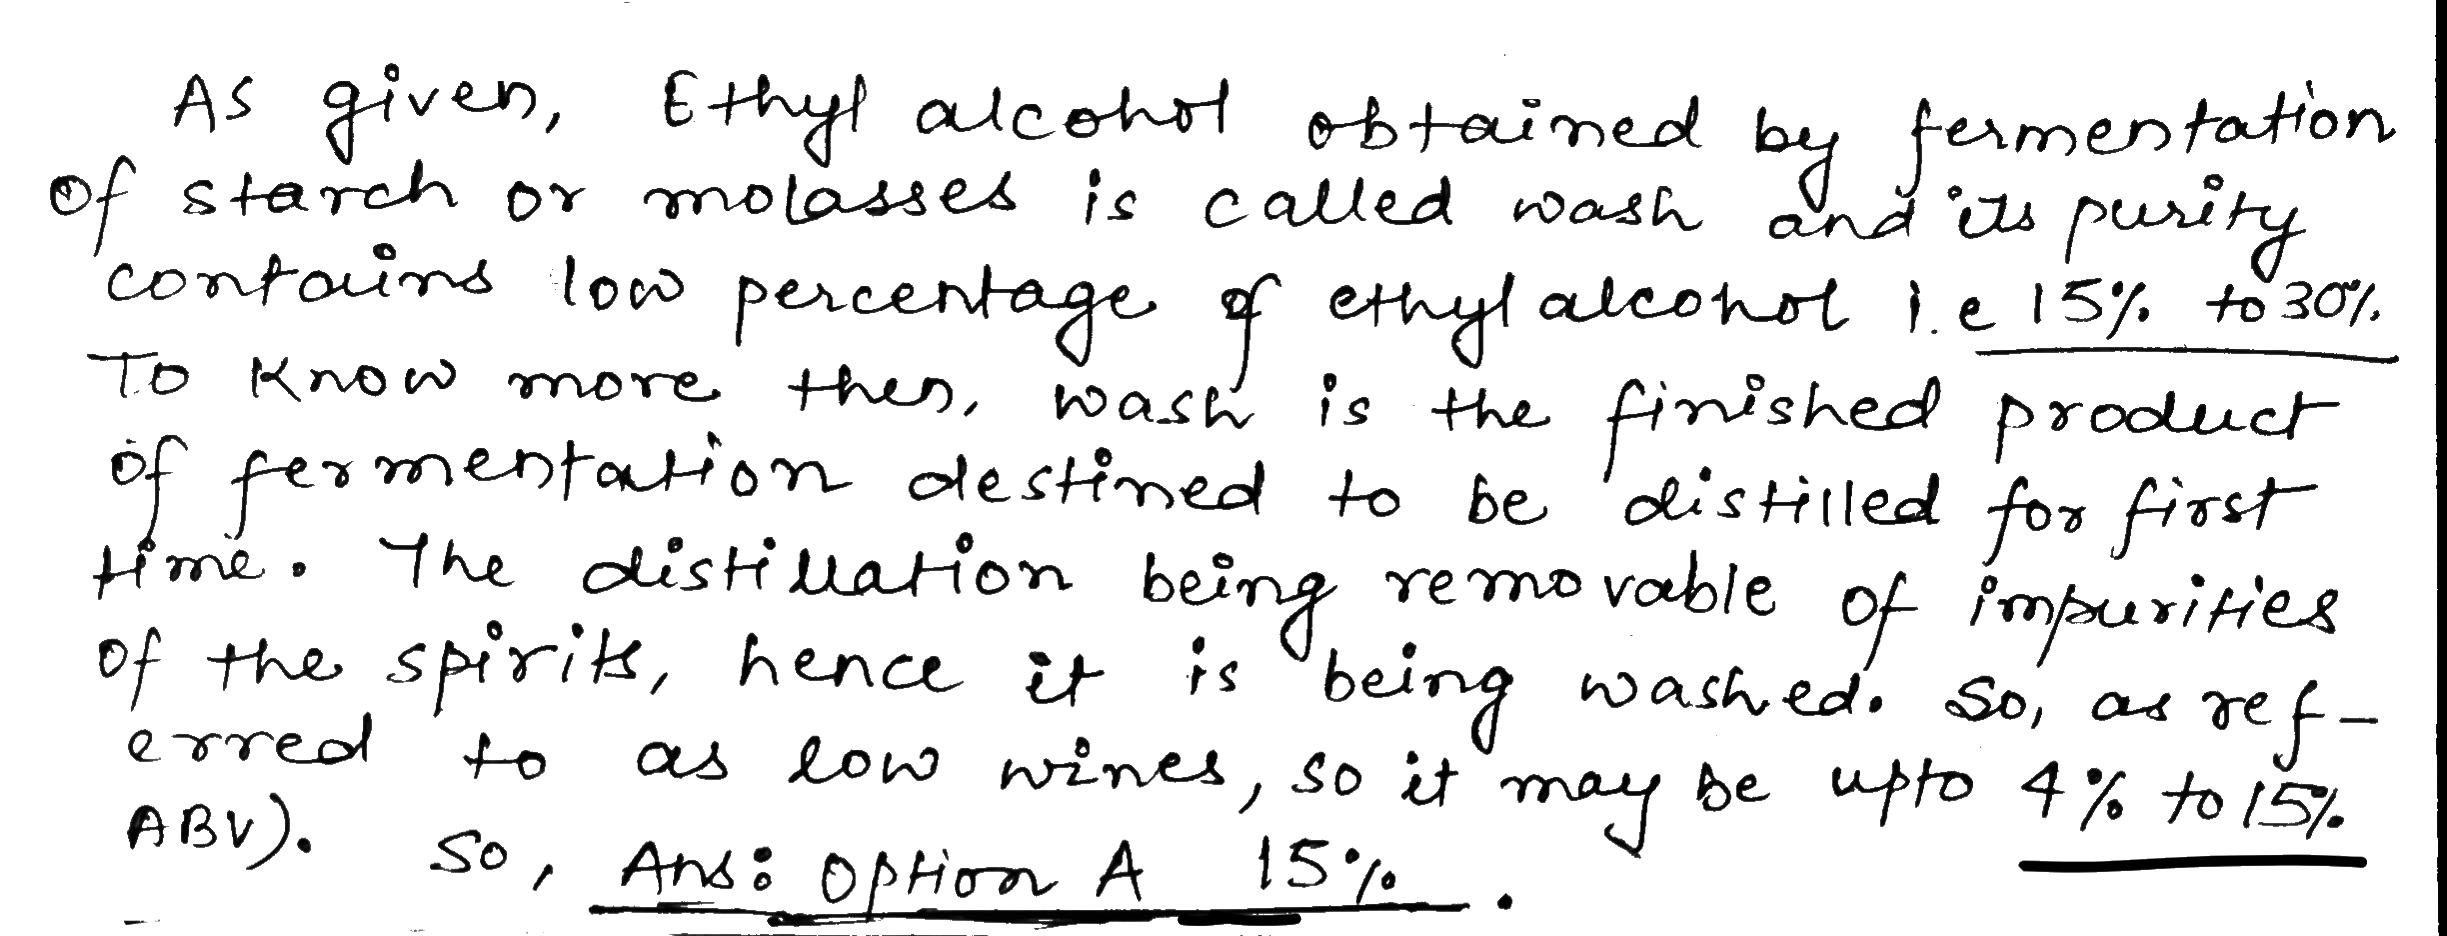 As given, Ethyl alcohol obtained by fermentation
of starch or molasses is called wash and its purity
contains low percentage of ethyl alcohol i.e 15% to 30%.
To know more then, wash is the finished product
of fermentation destined to be distilled for first
time. The distillation being removable of impurities
of the spirits, hence it is being washed. So, as ref-
erred to as low wines, so it may be upto 4% to 15%
ABV). So, Ans: Option A 15%.